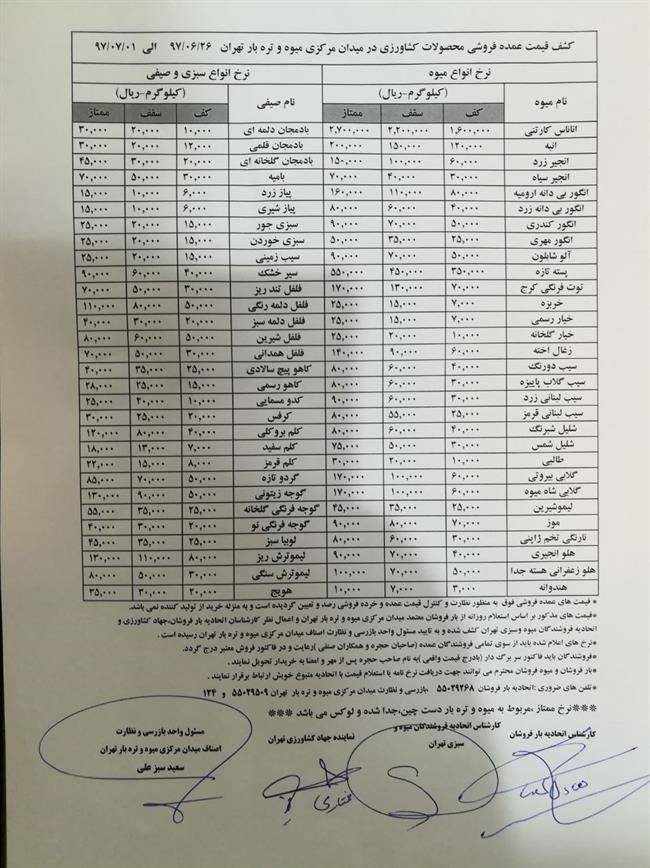 کشف قیمت عمده فروشی محصولات کشاورزی در میدان مرکزی میوه و تره بار تهران ۹۷/۰۶/۲۶ الی ۹۷/۰۷/۰۱
نرخ انواع میوه نرخ انواع سبزی و صیفی
نام میوه (کیلوگرم-ریال) نام صیفی (کیلوگرم-ریال)
کف سقف ممتاز کف سقف ممتاز
اناناس کارتنی ۱,۶۰۰,۰۰۰ ۲,۲۰۰,۰۰۰ ۲,۷۰۰,۰۰۰ بادمجان دلمه ای ۱۰,۰۰۰ ۲۰,۰۰۰ ۳۰,۰۰۰
انبه ۱۲۰,۰۰۰ ۱۵۰,۰۰۰ ۲۰۰,۰۰۰ بادمجان قلمی ۱۲,۰۰۰ ۲۰,۰۰۰ ۳۰,۰۰۰
انجیر زرد ۶۰,۰۰۰ ۱۰۰,۰۰۰ ۱۵۰,۰۰۰ بادمجان گلخانه ای ۲۰,۰۰۰ ۳۰,۰۰۰ ۴۵,۰۰۰
انجیر سیاه ۳۰,۰۰۰ ۴۰,۰۰۰ ۷۰,۰۰۰ بامیه ۳۰,۰۰۰ ۵۰,۰۰۰ ۷۰,۰۰۰
انگور بی دانه ارومیه ۸۰,۰۰۰ ۱۱۰,۰۰۰ ۱۶۰,۰۰۰ پیاز زرد ۶,۰۰۰ ۱۰,۰۰۰ ۱۵,۰۰۰
انگور بی دانه زرد ۴۰,۰۰۰ ۶۰,۰۰۰ ۸۰,۰۰۰ پیاز شیری ۶,۰۰۰ ۱۰,۰۰۰ ۱۵,۰۰۰
انگور کندری ۵۰,۰۰۰ ۷۰,۰۰۰ ۹۰,۰۰۰ سبزی جور ۱۵,۰۰۰ ۲۰,۰۰۰ ۲۵,۰۰۰
انگور مهری ۲۵,۰۰۰ ۳۵,۰۰۰ ۵۰,۰۰۰ سبزی خوردن ۱۵,۰۰۰ ۲۰,۰۰۰ ۲۵,۰۰۰
آلو شابلون ۵۰,۰۰۰ ۷۰,۰۰۰ ۹۰,۰۰۰ سیب زمینی ۱۵,۰۰۰ ۲۰,۰۰۰ ۲۵,۰۰۰
پسته تازه ۳۵۰,۰۰۰ ۴۵۰,۰۰۰ ۵۵۰,۰۰۰ سیر خشک ۴۰,۰۰۰ ۶۰,۰۰۰ ۹۰,۰۰۰
توت فرنگی کرج ۷۰,۰۰۰ ۱۳۰,۰۰۰ ۱۷۰,۰۰۰ فلفل تند ریز ۳۰,۰۰۰ ۵۰,۰۰۰ ۷۰,۰۰۰
خربزه ۷,۰۰۰ ۱۵,۰۰۰ ۲۵,۰۰۰ فلفل دلمه رنگی ۵۰,۰۰۰ ۸۰,۰۰۰ ۱۱۰,۰۰۰
خیار رسمی ۷,۰۰۰ ۱۵,۰۰۰ ۲۵,۰۰۰ فلفل دلمه سبز ۲۰,۰۰۰ ۳۰,۰۰۰ ۴۰,۰۰۰
خیار گلخانه ۱۰,۰۰۰ ۲۰,۰۰۰ ۲۵,۰۰۰ فلفل شیرین ۵۰,۰۰۰ ۶۰,۰۰۰ ۸۰,۰۰۰
زغال اخته ۶۰,۰۰۰ ۹۰,۰۰۰ ۱۴۰,۰۰۰ فلفل همدانی ۳۰,۰۰۰ ۵۰,۰۰۰ ۷۰,۰۰۰
سیب دورنگ ۴۰,۰۰۰ ۶۰,۰۰۰ ۸۰,۰۰۰ کاهو پیچ سالادی ۲۵,۰۰۰ ۳۵,۰۰۰ ۴۰,۰۰۰
سیب گلاب پاییزه ۳۰,۰۰۰ ۶۰,۰۰۰ ۸۰,۰۰۰ کاهو رسمی ۱۵,۰۰۰ ۲۵,۰۰۰ ۲۸,۰۰۰
سیب لبنانی زرد ۳۰,۰۰۰ ۶۰,۰۰۰ ۹۰,۰۰۰ کدو مسمایی ۱۰,۰۰۰ ۲۰,۰۰۰ ۲۵,۰۰۰
سیب لبنانی قرمز ۲۵,۰۰۰ ۵۵,۰۰۰ ۸۰,۰۰۰ کرفس ۲۰,۰۰۰ ۲۵,۰۰۰ ۳۰,۰۰۰
شلیل شبرنگ ۴۰,۰۰۰ ۶۰,۰۰۰ ۸۰,۰۰۰ کلم بروکلی ۴۰,۰۰۰ ۸۰,۰۰۰ ۱۲۰,۰۰۰
شلیل شمس ۳۰,۰۰۰ ۵۰,۰۰۰ ۷۵,۰۰۰ کلم سفید ۷,۰۰۰ ۱۳,۰۰۰ ۱۸,۰۰۰
طالبی ۱۰,۰۰۰ ۲۰,۰۰۰ ۳۰,۰۰۰ کلم قرمز ۸,۰۰۰ ۱۵,۰۰۰ ۲۲,۰۰۰
گلابی بیروتی ۶۰,۰۰۰ ۱۰۰,۰۰۰ ۱۷۰,۰۰۰ گردو تازه ۵۰,۰۰۰ ۷۰,۰۰۰ ۸۵,۰۰۰
گلابی شاه میوه ۶۰,۰۰۰ ۱۰۰,۰۰۰ ۱۷۰,۰۰۰ گوجه زیتونی ۵۰,۰۰۰ ۹۰,۰۰۰ ۱۳۰,۰۰۰
لیموشیرین ۲۵,۰۰۰ ۳۵,۰۰۰ ۴۵,۰۰۰ گوجه فرنگی گلخانه ۲۵,۰۰۰ ۳۵,۰۰۰ ۵۵,۰۰۰
موز ۷۰,۰۰۰ ۸۰,۰۰۰ ۹۰,۰۰۰ گوجه فرنگی نو ۲۰,۰۰۰ ۳۰,۰۰۰ ۴۰,۰۰۰
نارنگی تخم ژاپنی ۳۰,۰۰۰ ۶۰,۰۰۰ ۸۰,۰۰۰ لوبیا سبز ۲۵,۰۰۰ ۳۵,۰۰۰ ۴۵,۰۰۰
هلو انجیری ۴۰,۰۰۰ ۷۰,۰۰۰ ۹۰,۰۰۰ لیموترش ریز ۸۰,۰۰۰ ۱۱۰,۰۰۰ ۱۳۰,۰۰۰
هلو زعفرانی هسته جدا ۵۰,۰۰۰ ۷۰,۰۰۰ ۱۰۰,۰۰۰ لیموترش سنگی ۳۰,۰۰۰ ۵۰,۰۰۰ ۸۰,۰۰۰
هندوانه ۳,۰۰۰ ۷,۰۰۰ ۱۰,۰۰۰ هویج ۲۰,۰۰۰ ۳۰,۰۰۰ ۳۵,۰۰۰
*قیمت های عمده فروشی فوق به منظور نظارت و کنترل قیمت عمده و خرده فروشی رصد و تعیین گردیده است و به منزله خرید از تولید کننده نمی باشد.
*قیمت های مذکور بر اساس استعلام روزانه از بار فروشان معتمد میدان مرکزی میوه و تره بار تهران و اعمال نظر کارشناسان اتحادیه بارفروشان،جهاد کشاورزی و
اتحادیه فروشندگان میوه وسبزی تهران کشف شده و به تایید مسئول واحد بازرسی و نظارت اصناف میدان مرکزی میوه و تره بار تهران رسیده است .
*نرخ های اعلام شده باید از سوی تمامی فروشندگان عمده (صاحبان حجره و همکاران صنفی )رعایت و در فاکتور فروش معتبر درج گردد.
*فروشندگان باید فاکتور سر برگ دار (بادرج قیمت واقعی )به نام صاحب حجره پس از مهر و امضا به خریدار تحویل نمایند .
*بار فروشان و میوه فروشان محترم می توانند جهت دریافت نرخ نامه یا استعلام قیمت با اتحادیه متبوع خویش ارتباط برقرار نمایند .
*تلفن های ضروری :اتحادیه بار فروشان ۵۵۰۲۹۲۶۸ بازرسی و نظارت میدان مرکزی میوه و تره بار تهران ۵۵۰۲۹۵۰۹ و ۱۲۴
***نرخ ممتاز ،مربوط به میوه و تره بار دست چین،جدا شده و لوکس می باشد ***
کارشناس اتحادیه بار فروشان
کارشناس اتحادیه فروشندگان میوه و
سبزی تهران
نماینده جهاد کشاورزی تهران
مسئول واحد بازرسی و نظارت
اصناف میدان مرکزی میوه و تره بار تهران
سعید سبز علی